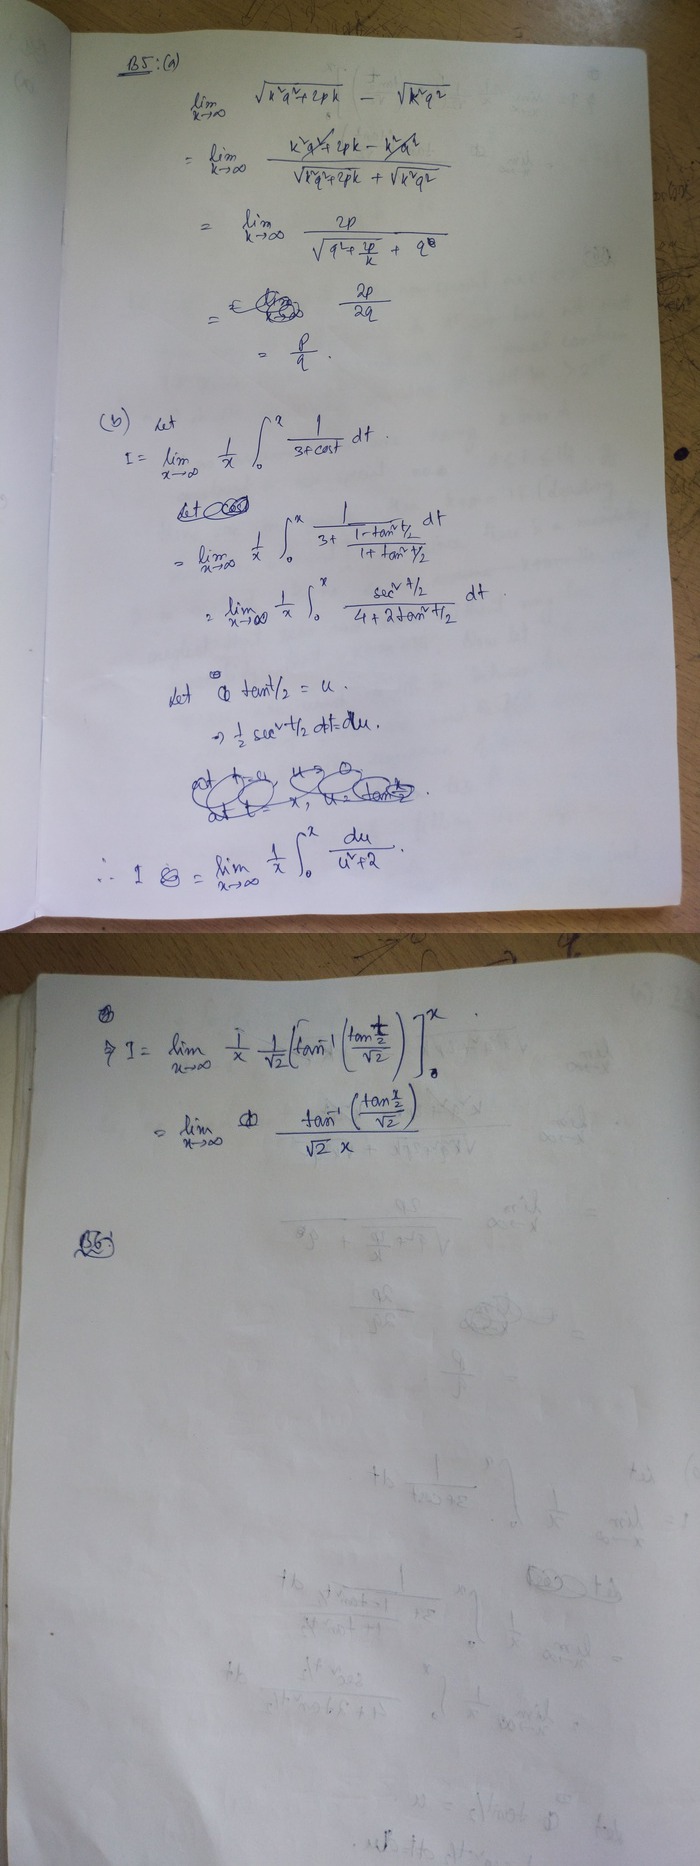 B5: (a)
lim x→∞ √(k²q²+2pk) − √(k²q²)
= lim k→∞ (k²q²+2pk − k²q²)/(√(k²q²+2pk) + √(k²q²))
= lim k→∞ 2p/(√(q²+2p/k) + q)
= 2p/2q
= p/q .
(b) Let
I = lim x→∞ 1/x ∫₀ˣ 1/(3+cost) dt .
= lim x→∞ 1/x ∫₀ˣ 1/(3 + (1−tan² t/2)/(1+tan² t/2)) dt
= lim x→∞ 1/x ∫₀ˣ (sec² t/2)/(4+2tan² t/2) dt .
Let tan t/2 = u .
⇒ 1/2 sec² t/2 dt = du .
∴ I = lim x→∞ 1/x ∫₀ˣ du/(u²+2) .
⇒ I = lim x→∞ 1/x 1/√2 [tan⁻¹ ((tan t/2)/√2)]₀ˣ .
= lim x→∞ tan⁻¹ ((tan x/2)/√2) / (√2 x)
B6: